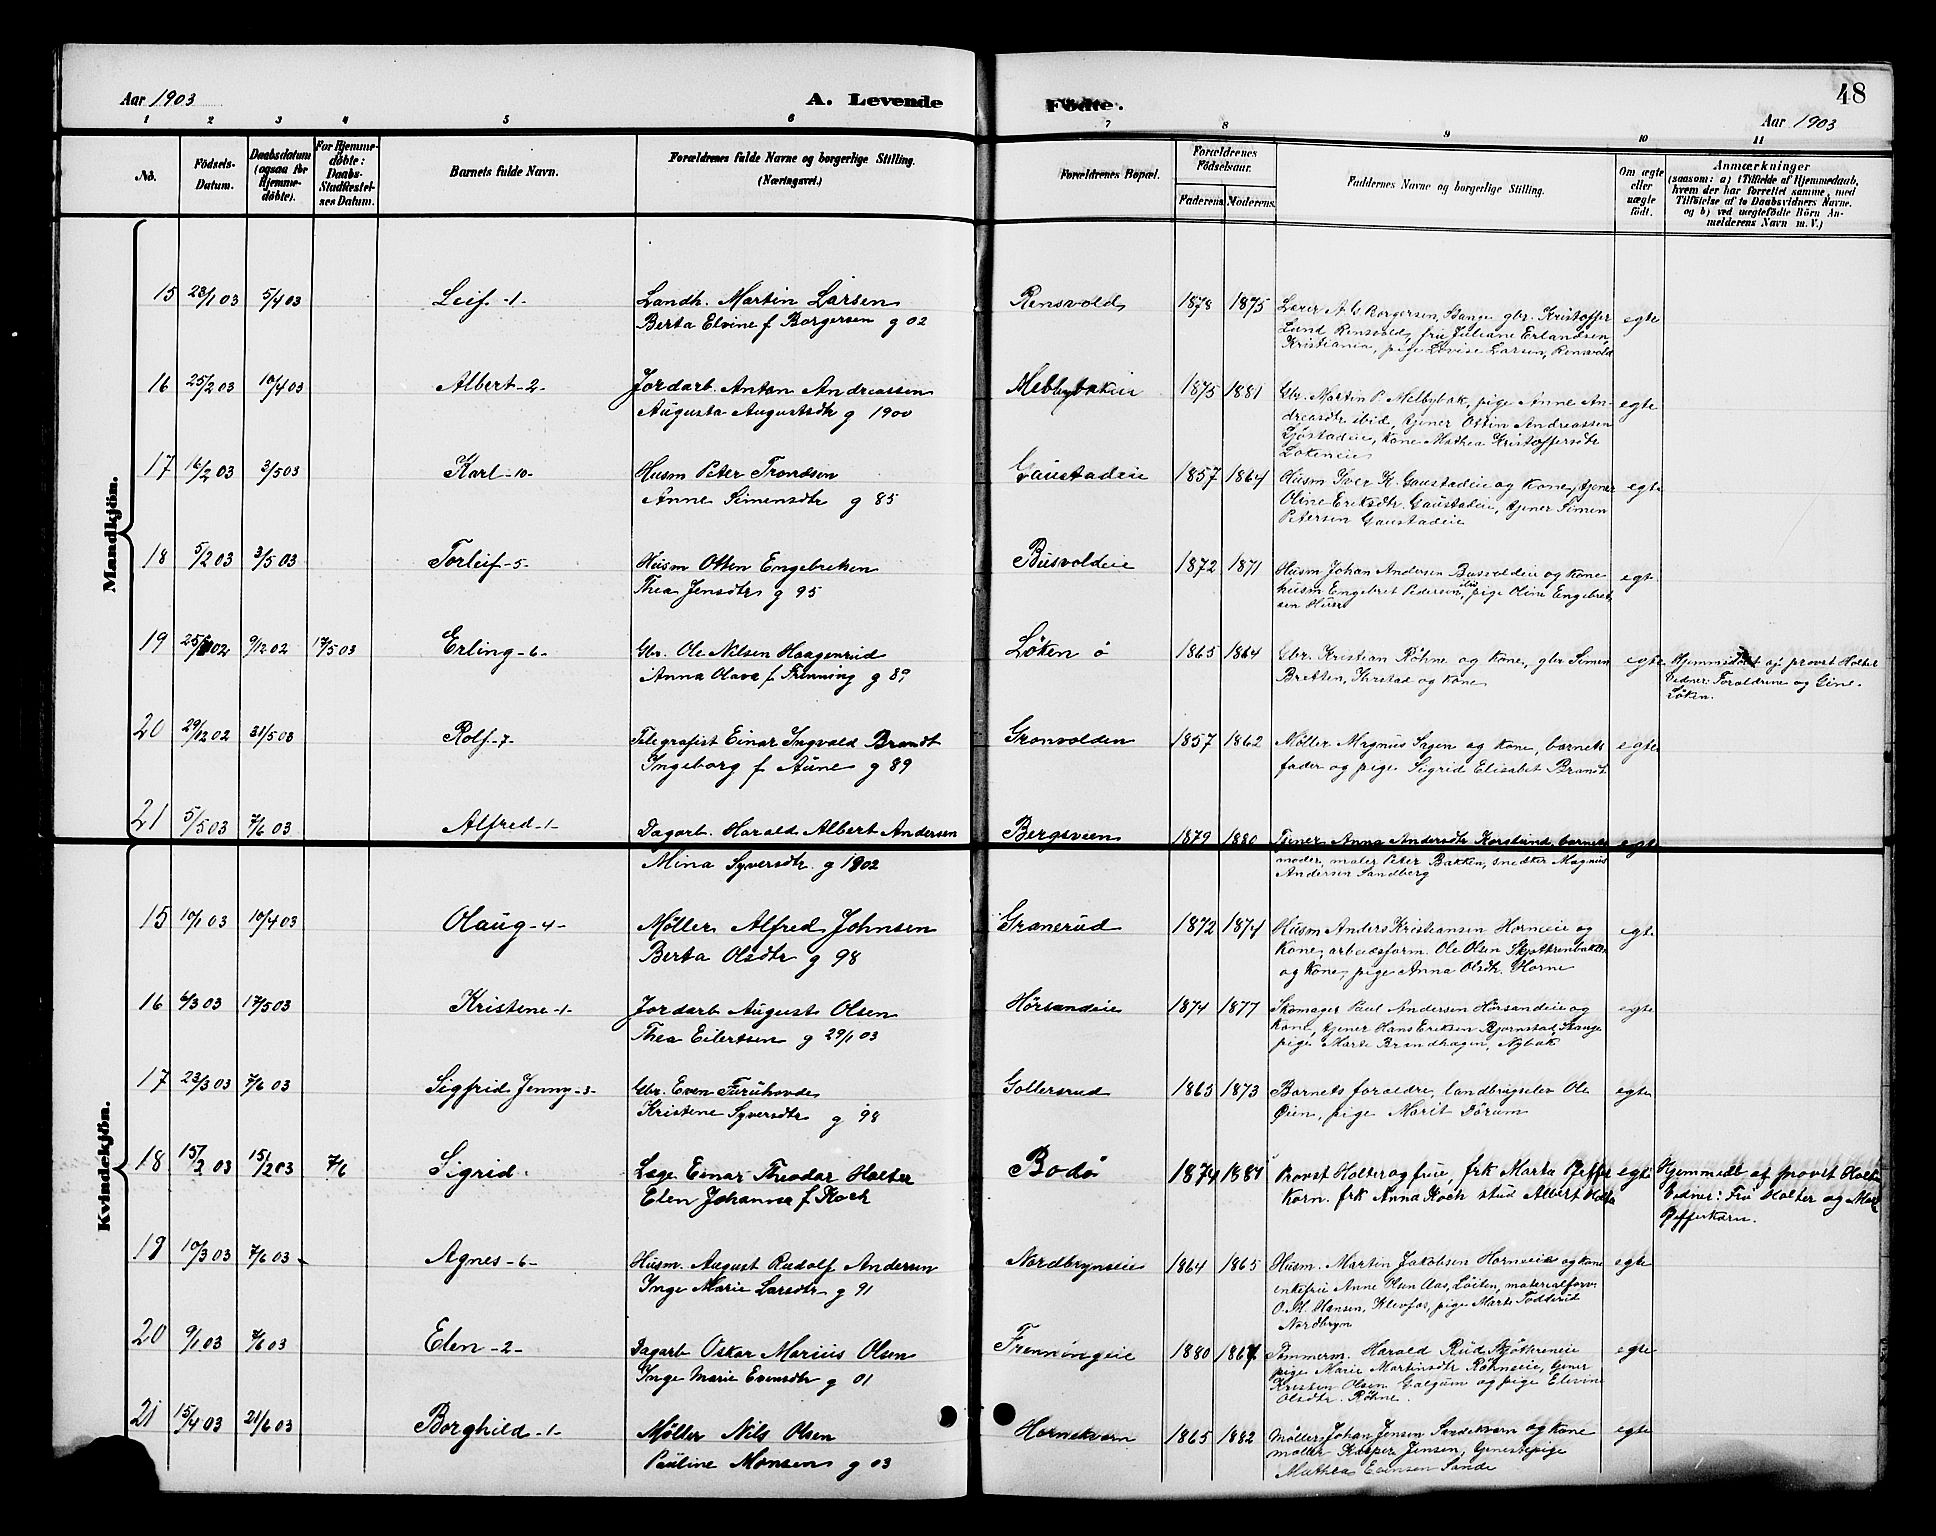 Aar 1903
A. Levende
Fødte.
48
Aar 1903
1 2 3 4 5 6 7 8 9 10 11
No.
Fødsels-
Datum.
Daabsdatum
(ogsaa for
Hjemme-
døbte).
For Hjemme-
døbte:
Daabs-
Stadfæstel-
ses Datum.
Barnets fulde Navn.
Forældrenes fulde Navne og borgerlige Stilling.
(Næringsvei.)
Forældrenes Bopæl.
Forældrenes
Fødselsaar.
Faderens. Moderens.
Faddernes Navne og borgerlige Stilling.
Om ægte
eller
uægte
født.
Anmærkninger
(saasom: a) i Tilfælde af Hjemmedaab,
hvem der har forrettet samme, med
Tilføielse af to Daabsvidners Navne.
og b) ved uegtefødte Børn An-
melderens Navn m. V.)
Mandkjön.
15 23/1 03 5/4 03 Leif -1- Landh. Martin Larsen Rensvold 1878 1875
Berta Elvine f Borgersen g 02
Lærer A. C Borgersen, Stange gbr. Kristoffer
Lund Rensvold, fru Juliane Erlandsen,
Kristiania, pige Lovise Larsen, Rensvold
egte
16 25/2 03 10/4 03 Albert -2- Jordarb. Anton Andreassen Melbybakeie 1875 1881
Augusta Augustsdtr g 1900
Gbr. Martin P Melbybak, pige Anne An-
dreasdtr ibid, tjener Ottin Andreassen
kone Mathea Kristoffersdtr
Løkeneie
egte
17 16/2 03 3/5 03 Karl -10- Husm Peter Trondsen Gaustadeie 1857 1864
Anne Simensdtr g 85
Husm Iver K. Gaustadeie og kone, tjener
Oline Eriksdtr. Gaustadeie, tjener Simen
Petersen Gaustadeie
egte
18 5/2 03 3/5 03 Torleif -5- Husm Otten Engebretsen Busvoldeie 1872 1871
Thea Jensdtr g 95
Husm Johan Andersen Busvoldeie og kone
husm Engebret Pedersen, pige Oline Engebret
sen
egte
19 25/ 02 9/12 02 17/5 03 Erling -6- Gbr. Ole Nilsen Haagenrud Løken ø 1865 1864
Anna Olava f Frenning g 89
Gbr. Kristian Røhne og kone, gbr Simen
Bretten, og kone
egte
Hjemmedøbt af provst Holter
Vidner: Forældrene og Gine
Løken.
20 29/12 02 31/5 03 Rolf -7- Telegrafist Einar Ingvald Brandt Grønvolden 1857 1862
Ingeborg f Aune g 89
Møller Magnus Sagen og kone, barnets
fader og pige Sigrid Elisabet Brandt
egte
21 5/5 03 7/6 03 Alfred -1- Dagarb. Harald Albert Andersen Bergsveen 1879 1880
Mina Syversdtr. g 1902
Tjener Anna Andersdtr Korslund barnets
moder, maler Peter Bakken, snedker Magnus
Andersen Sandberg
egte
Kvindekjön.
15 10/1 03 10/4 03 Olaug -4- Møller Alfred Johnsen Granerud 1872 1874
Berta Olsdtr g 98
Husm Anders Kristiansen Horneeie og
kone, arbeidsform. Ole Olsen Skjøttrenbakken
og kone, pige Anna Olsdtr. Horne
egte
16 6/3 03 17/5 03 Kristene -1- Jordarb August Olsen Hørsandeie 1874 1877
Thea Eilertsen g 29/1 03
Skomager Paul Andersen Hørsandeie og
kone, tjener Hans Eriksen Bjørnstad, Stange
pige Marte Brandhagen, Nybak
egte
17 23/3 03 7/6 03 Sigfrid Jenny -3- Gbr. Even Furuhovde Gollersrud 1865 1873
Kristene Syversdtr g 98
Barnets foraldre, landbrugselev Ole
Øien, pige Marit Dørum
egte
18 15/2 03 15/2 03 7/6 Sigrid Læge Einar Theodor Holter Bodø 1874 1881
Elen Johanna f Koch
Provst Holter og frue, frk Marta Pfeffer
korn. frk Anna Koch stud Albert Holter
egte
Hjemmedbt af provst Holter
Vidner: Fru Holter og Marta
Pfefferkorn.
19 10/3 03 7/6 03 Agnes -6- Husm. August Rudolf Andersen Nordbryneeie 1864 1865
Inge Marie Larsdtr g 91
Husm. Martin Jakobsen Horneeie og kone
enkefru Anne Hun Aas, Løiten, materialforv.
O. M. Hansen, Klevfos, pige Marte Todderud
Nordbryn
egte
20 9/1 03 7/6 03 Elen -2- Dagarb Oskar Marius Olsen Frenningeie 1880 1867
Inge Marie Evensdtr g 01
Tømmerm. Harald Rud Skjøttreneie
pige Marie Martinsdtr Røhneeie, tjener
Kristen Olsen Galgum og pige Elevine
Olsdtr. Røhne.
egte
21 15/4 03 21/6 03 Borghild -1- Møller Nils Olsen Hornekvern 1865 1882
Pauline Monsen g 03
Møller Johan Jensen Sandekvern og kone
møller Kasper Jensen, tjenestepige
Mathea Evensen Sande
egte